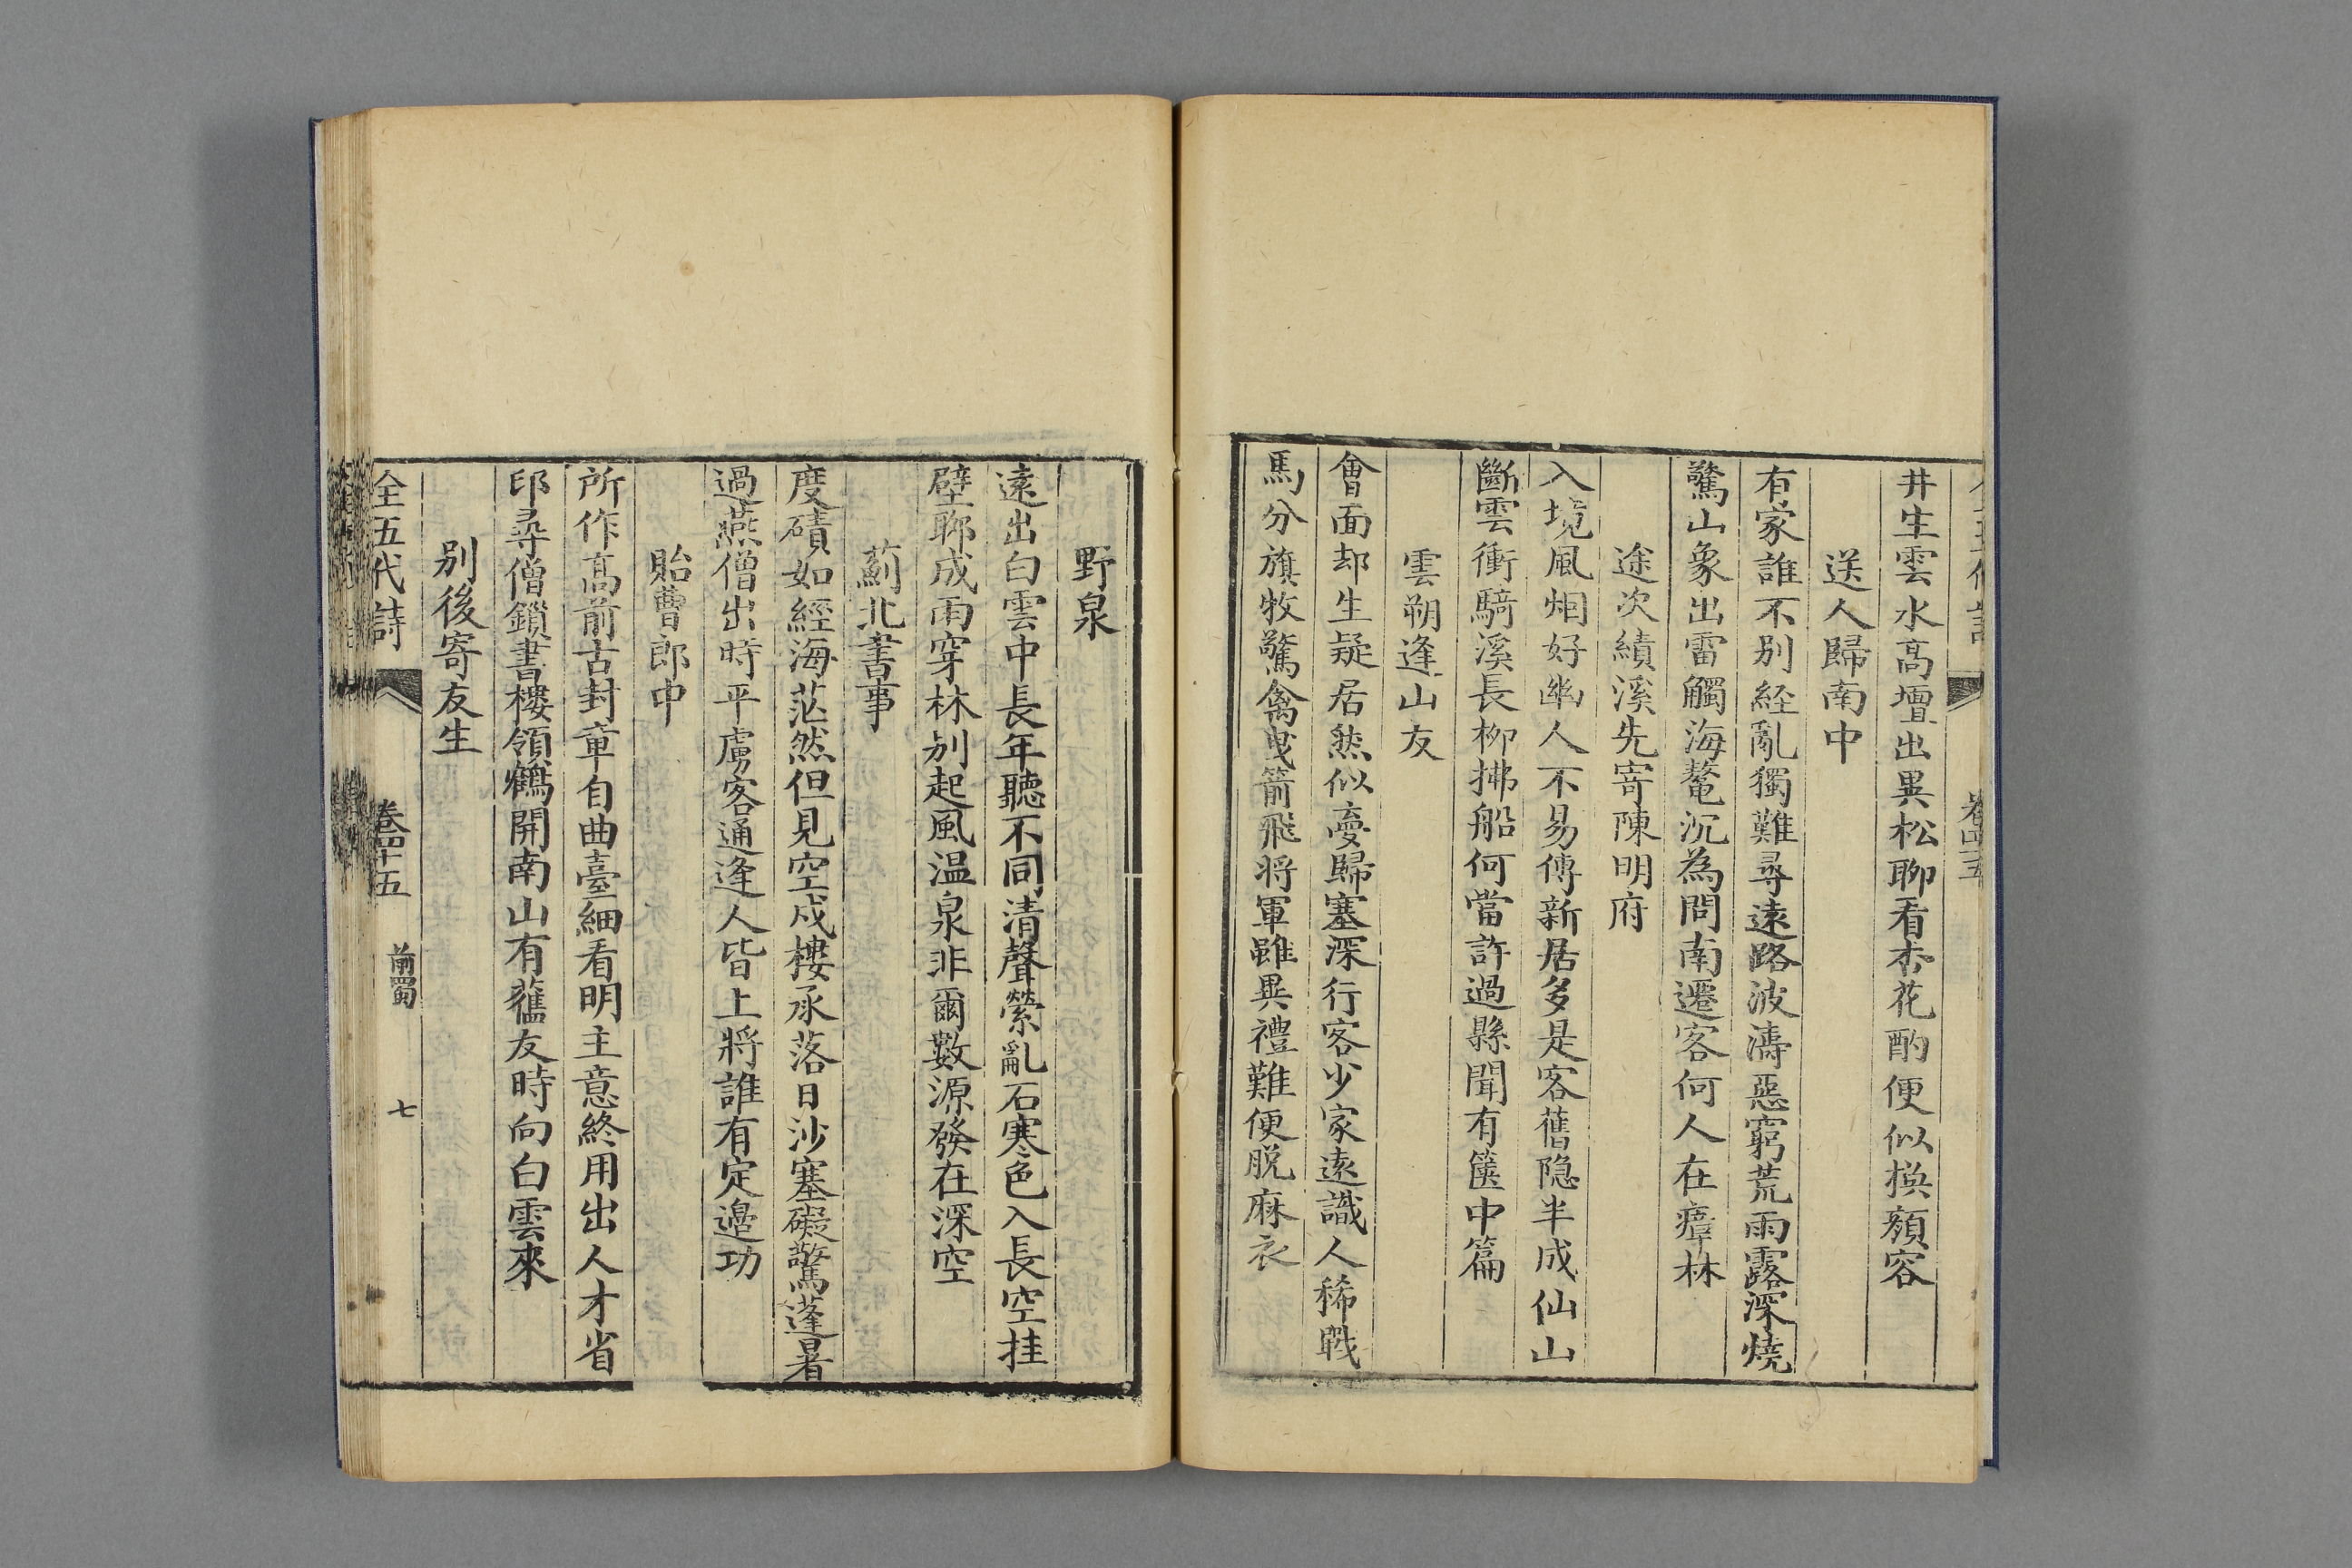 井生雲水高壇出異松聊看杏花酌便似換顏容
送人歸南中
有家誰不別經亂獨難尋遠路波濤惡窮荒雨露深燒
驚山象出雷觸海鼇沉為問南遷客何人在瘴林
途次績溪先寄陳明府
入境風烟好幽人不易傳新居多是客舊隐半成仙山
斷雲衝騎溪長栁拂船何當許過縣聞有篋中篇
雲朔逢山友
會面却生疑居然似夣歸塞深行客少家遠識人稀戰
馬分旗牧驚禽曳箭飛將軍雖異禮難便脱麻衣
野泉
遠出白雲中長年聽不同清聲縈亂石寒色入長空挂
壁聊成雨穿林别起風温泉非爾數源發在深空
薊北書事
度磧如經海茫然但見空戍樓承落日沙塞礙驚蓬暑
過燕僧出時平虜客通逢人皆上將誰有定邉功
貽曹郎中
所作髙前古封章自曲臺細看明主意終用出人才省
印尋僧鎖書樓領鶴開南山有舊友時向白雲來
别後寄友生
全五代詩 卷四十五 前蜀 七